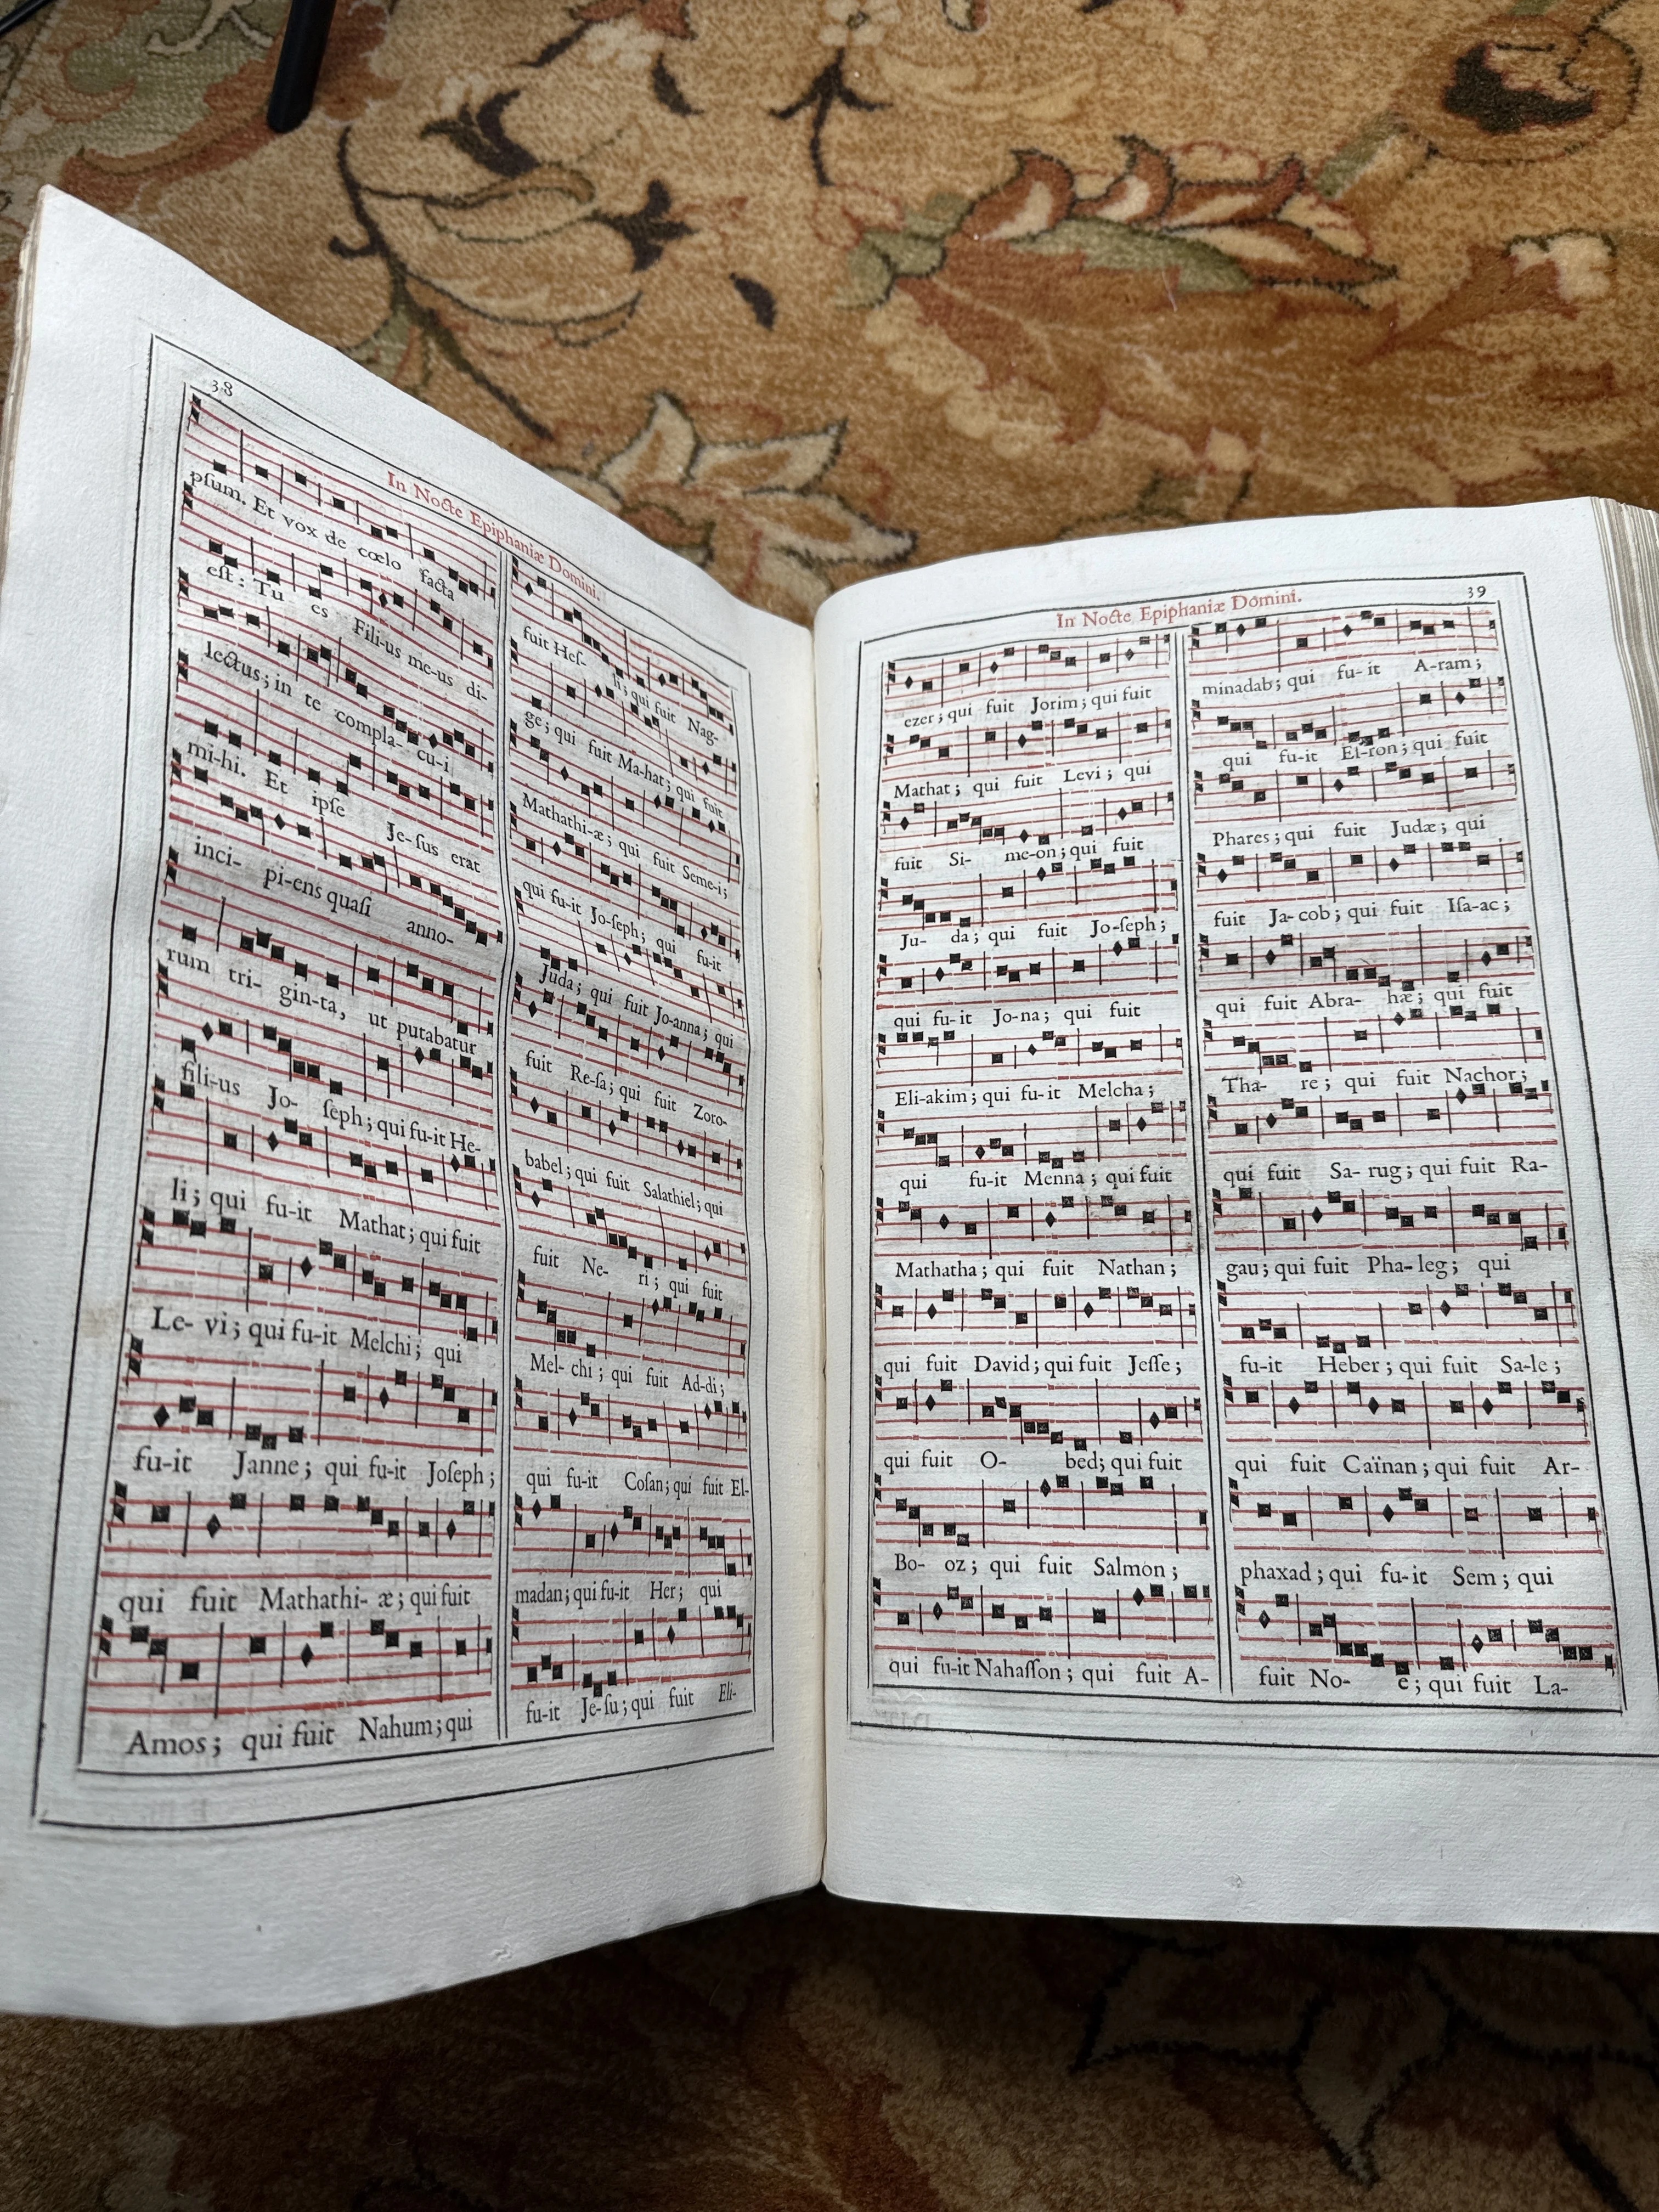 38
In Nocte Epiphaniæ Domini.
pſum. Et vox de cœlo facta
eſt : Tu es Fili-us me-us di-
lectus ; in te compla- cu-i
mi-hi. Et ipſe Je-ſus erat
inci- pi-ens quaſi anno-
rum tri- gin-ta, ut putabatur
fili-us Jo- ſeph ; qui fu-it He-
li ; qui fu-it Mathat ; qui fuit
Le- vi ; qui fu-it Melchi ; qui
fu-it Janne ; qui fu-it Joſeph ;
qui fuit Mathathi- æ ; qui fuit
Amos ; qui fuit Nahum ; qui
fuit Heſ- li ; qui fuit Nag-
ge ; qui fuit Ma-hat ; qui fuit
Mathathi-æ ; qui fuit Seme-i ;
qui fu-it Jo-ſeph ; qui fu-it
Juda ; qui fuit Jo-anna ; qui
fuit Re-ſa ; qui fuit Zoro-
babel ; qui fuit Salathiel ; qui
fuit Ne- ri ; qui fuit
Mel- chi ; qui fuit Ad-di ;
qui fu-it Coſan ; qui fuit El-
madan ; qui fu-it Her ; qui
fu-it Je-ſu ; qui fuit Eli-
In Nocte Epiphaniæ Domini.
39
ezer ; qui fuit Jorim ; qui fuit
Mathat ; qui fuit Levi ; qui
fuit Si- me-on ; qui fuit
Ju- da ; qui fuit Jo-ſeph ;
qui fu-it Jo-na ; qui fuit
Eli-akim ; qui fu-it Melcha ;
qui fu-it Menna ; qui fuit
Mathatha ; qui fuit Nathan ;
qui fuit David ; qui fuit Jeſſe ;
qui fuit O- bed ; qui fuit
Bo- oz ; qui fuit Salmon ;
qui fu-it Nahaſſon ; qui fuit A-
minadab ; qui fu-it A-ram ;
qui fu-it Eſ-ron ; qui fuit
Phares ; qui fuit Judæ ; qui
fuit Ja-cob ; qui fuit Iſa-ac ;
qui fuit Abra- hæ ; qui fuit
Tha- re ; qui fuit Nachor ;
qui fuit Sa- rug ; qui fuit Ra-
gau ; qui fuit Pha-leg ; qui
fu-it Heber ; qui fuit Sa-le ;
qui fuit Caïnan ; qui fuit Ar-
phaxad ; qui fu-it Sem ; qui
fuit No- ë ; qui fuit La-